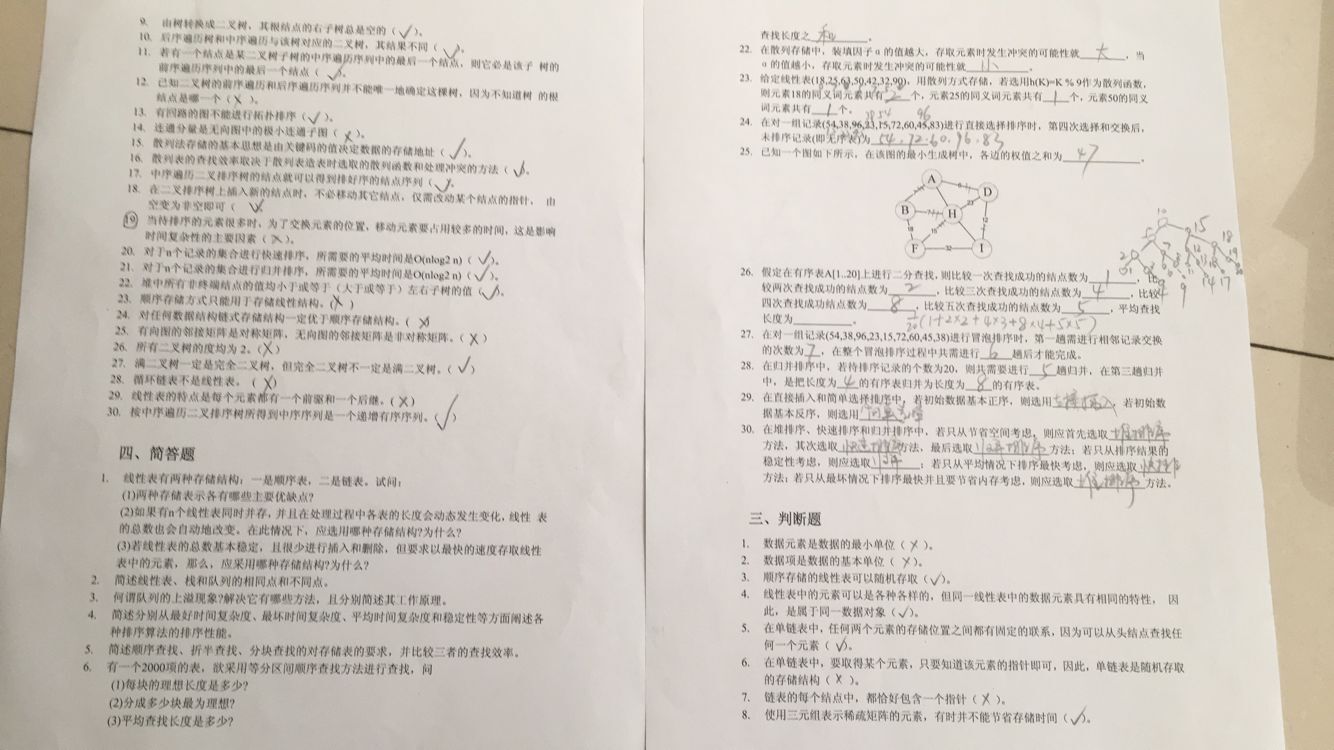 9. 由树转换成二叉树，其根结点的右子树总是空的（ ✓ ）。
10. 后序遍历树和中序遍历与该树对应的二叉树，其结果不同（ ✓ ）。
11. 若有一个结点是某二叉树子树的中序遍历序列中的最后一个结点，则它必是该子 树的
前序遍历序列中的最后一个结点（ ）。
12. 已知二叉树的前序遍历和后序遍历序列并不能唯一地确定这棵树，因为不知道树 的根
结点是哪一个（ × ）。
13. 有回路的图不能进行拓扑排序（ ✓ ）。
14. 连通分量是无向图中的极小连通子图（ × ）。
15. 散列法存储的基本思想是由关键码的值决定数据的存储地址（ ✓ ）。
16. 散列表的查找效率取决于散列表造表时选取的散列函数和处理冲突的方法（ ✓ ）。
17. 中序遍历二叉排序树的结点就可以得到排好序的结点序列（ ✓ ）。
18. 在二叉排序树上插入新的结点时，不必移动其它结点，仅需改动某个结点的指针， 由
空变为非空即可（ ✓ ）。
19 当待排序的元素很多时，为了交换元素的位置，移动元素要占用较多的时间，这是影响
时间复杂性的主要因素（ × ）。
20. 对于n个记录的集合进行快速排序，所需要的平均时间是O(nlog2 n)（ ✓ ）。
21. 对于n个记录的集合进行归并排序，所需要的平均时间是O(nlog2 n)（ ✓ ）。
22. 堆中所有非终端结点的值均小于或等于（大于或等于）左右子树的值（ ✓ ）。
23. 顺序存储方式只能用于存储线性结构。（ × ）
24. 对任何数据结构链式存储结构一定优于顺序存储结构。（ × ）
25. 有向图的邻接矩阵是对称矩阵，无向图的邻接矩阵是非对称矩阵。（ × ）
26. 所有二叉树的度均为 2。（ × ）
27. 满二叉树一定是完全二叉树，但完全二叉树不一定是满二叉树。（ ✓ ）
28. 循环链表不是线性表。（ × ）
29. 线性表的特点是每个元素都有一个前驱和一个后继。（ × ）
30. 按中序遍历二叉排序树所得到中序序列是一个递增有序序列。（ ✓ ）
四、简答题
1. 线性表有两种存储结构：一是顺序表，二是链表。试问：
(1)两种存储表示各有哪些主要优缺点?
(2)如果有n个线性表同时并存，并且在处理过程中各表的长度会动态发生变化，线性 表
的总数也会自动地改变。在此情况下，应选用哪种存储结构?为什么?
(3)若线性表的总数基本稳定，且很少进行插入和删除，但要求以最快的速度存取线性
表中的元素，那么，应采用哪种存储结构?为什么?
2. 简述线性表、栈和队列的相同点和不同点。
3. 何谓队列的上溢现象?解决它有哪些方法，且分别简述其工作原理。
4. 简述分别从最好时间复杂度、最坏时间复杂度、平均时间复杂度和稳定性等方面阐述各
种排序算法的排序性能。
5. 简述顺序查找、折半查找、分块查找的对存储表的要求，并比较三者的查找效率。
6. 有一个2000项的表，欲采用等分区间顺序查找方法进行查找，问
(1)每块的理想长度是多少?
(2)分成多少块最为理想?
(3)平均查找长度是多少?
查找长度之 和 。
22. 在散列存储中，装填因子α的值越大，存取元素时发生冲突的可能性就 大 ，当
α的值越小，存取元素时发生冲突的可能性就 小 。
23. 给定线性表(18,25,63,50,42,32,90)，用散列方式存储，若选用h(K)=K % 9作为散列函数，
则元素18的同义词元素共有 2 个，元素25的同义词元素共有 1 个，元素50的同义
词元素共有 1 个。
24. 在对一组记录(54,38,96,23,15,72,60,45,83)进行直接选择排序时，第四次选择和交换后，
未排序记录(即无序表)为 54.72.60.96.83
25. 已知一个图如下所示，在该图的最小生成树中，各边的权值之和为 47 。
A
D
B
H
F
32
I
26. 假定在有序表A[1..20]上进行二分查找，则比较一次查找成功的结点数为 1 ，比
较两次查找成功的结点数为 2 ，比较三次查找成功的结点数为 4 ，比较
四次查找成功结点数为 8 ，比较五次查找成功的结点数为 5 ，平均查找
长度为 。 1/20(1+2×2+4×3+8×4+5×5)
27. 在对一组记录(54,38,96,23,15,72,60,45,38)进行冒泡排序时，第一趟需进行相邻记录交换
的次数为 7 ，在整个冒泡排序过程中共需进行 6 趟后才能完成。
28. 在归并排序中，若待排序记录的个数为20，则共需要进行 5 趟归并，在第三趟归并
中，是把长度为 4 的有序表归并为长度为 8 的有序表。
29. 在直接插入和简单选择排序中，若初始数据基本正序，则选用 直接插入 ，若初始数
据基本反序，则选用 简单选择
30. 在堆排序、快速排序和归并排序中，若只从节省空间考虑，则应首先选取 堆排序
方法，其次选取 快速排序 方法，最后选取 归并排序 方法；若只从排序结果的
稳定性考虑，则应选取 归并 ；若只从平均情况下排序最快考虑，则应选取 快排序
方法；若只从最坏情况下排序最快并且要节省内存考虑，则应选取 堆排序 方法。
三、判断题
1. 数据元素是数据的最小单位（ × ）。
2. 数据项是数据的基本单位（ × ）。
3. 顺序存储的线性表可以随机存取（ ✓ ）。
4. 线性表中的元素可以是各种各样的，但同一线性表中的数据元素具有相同的特性， 因
此，是属于同一数据对象（ ✓ ）。
5. 在单链表中，任何两个元素的存储位置之间都有固定的联系，因为可以从头结点查找任
何一个元素（ ✓ ）。
6. 在单链表中，要取得某个元素，只要知道该元素的指针即可，因此，单链表是随机存取
的存储结构（ × ）。
7. 链表的每个结点中，都恰好包含一个指针（ × ）。
8. 使用三元组表示稀疏矩阵的元素，有时并不能节省存储时间（ ✓ ）。